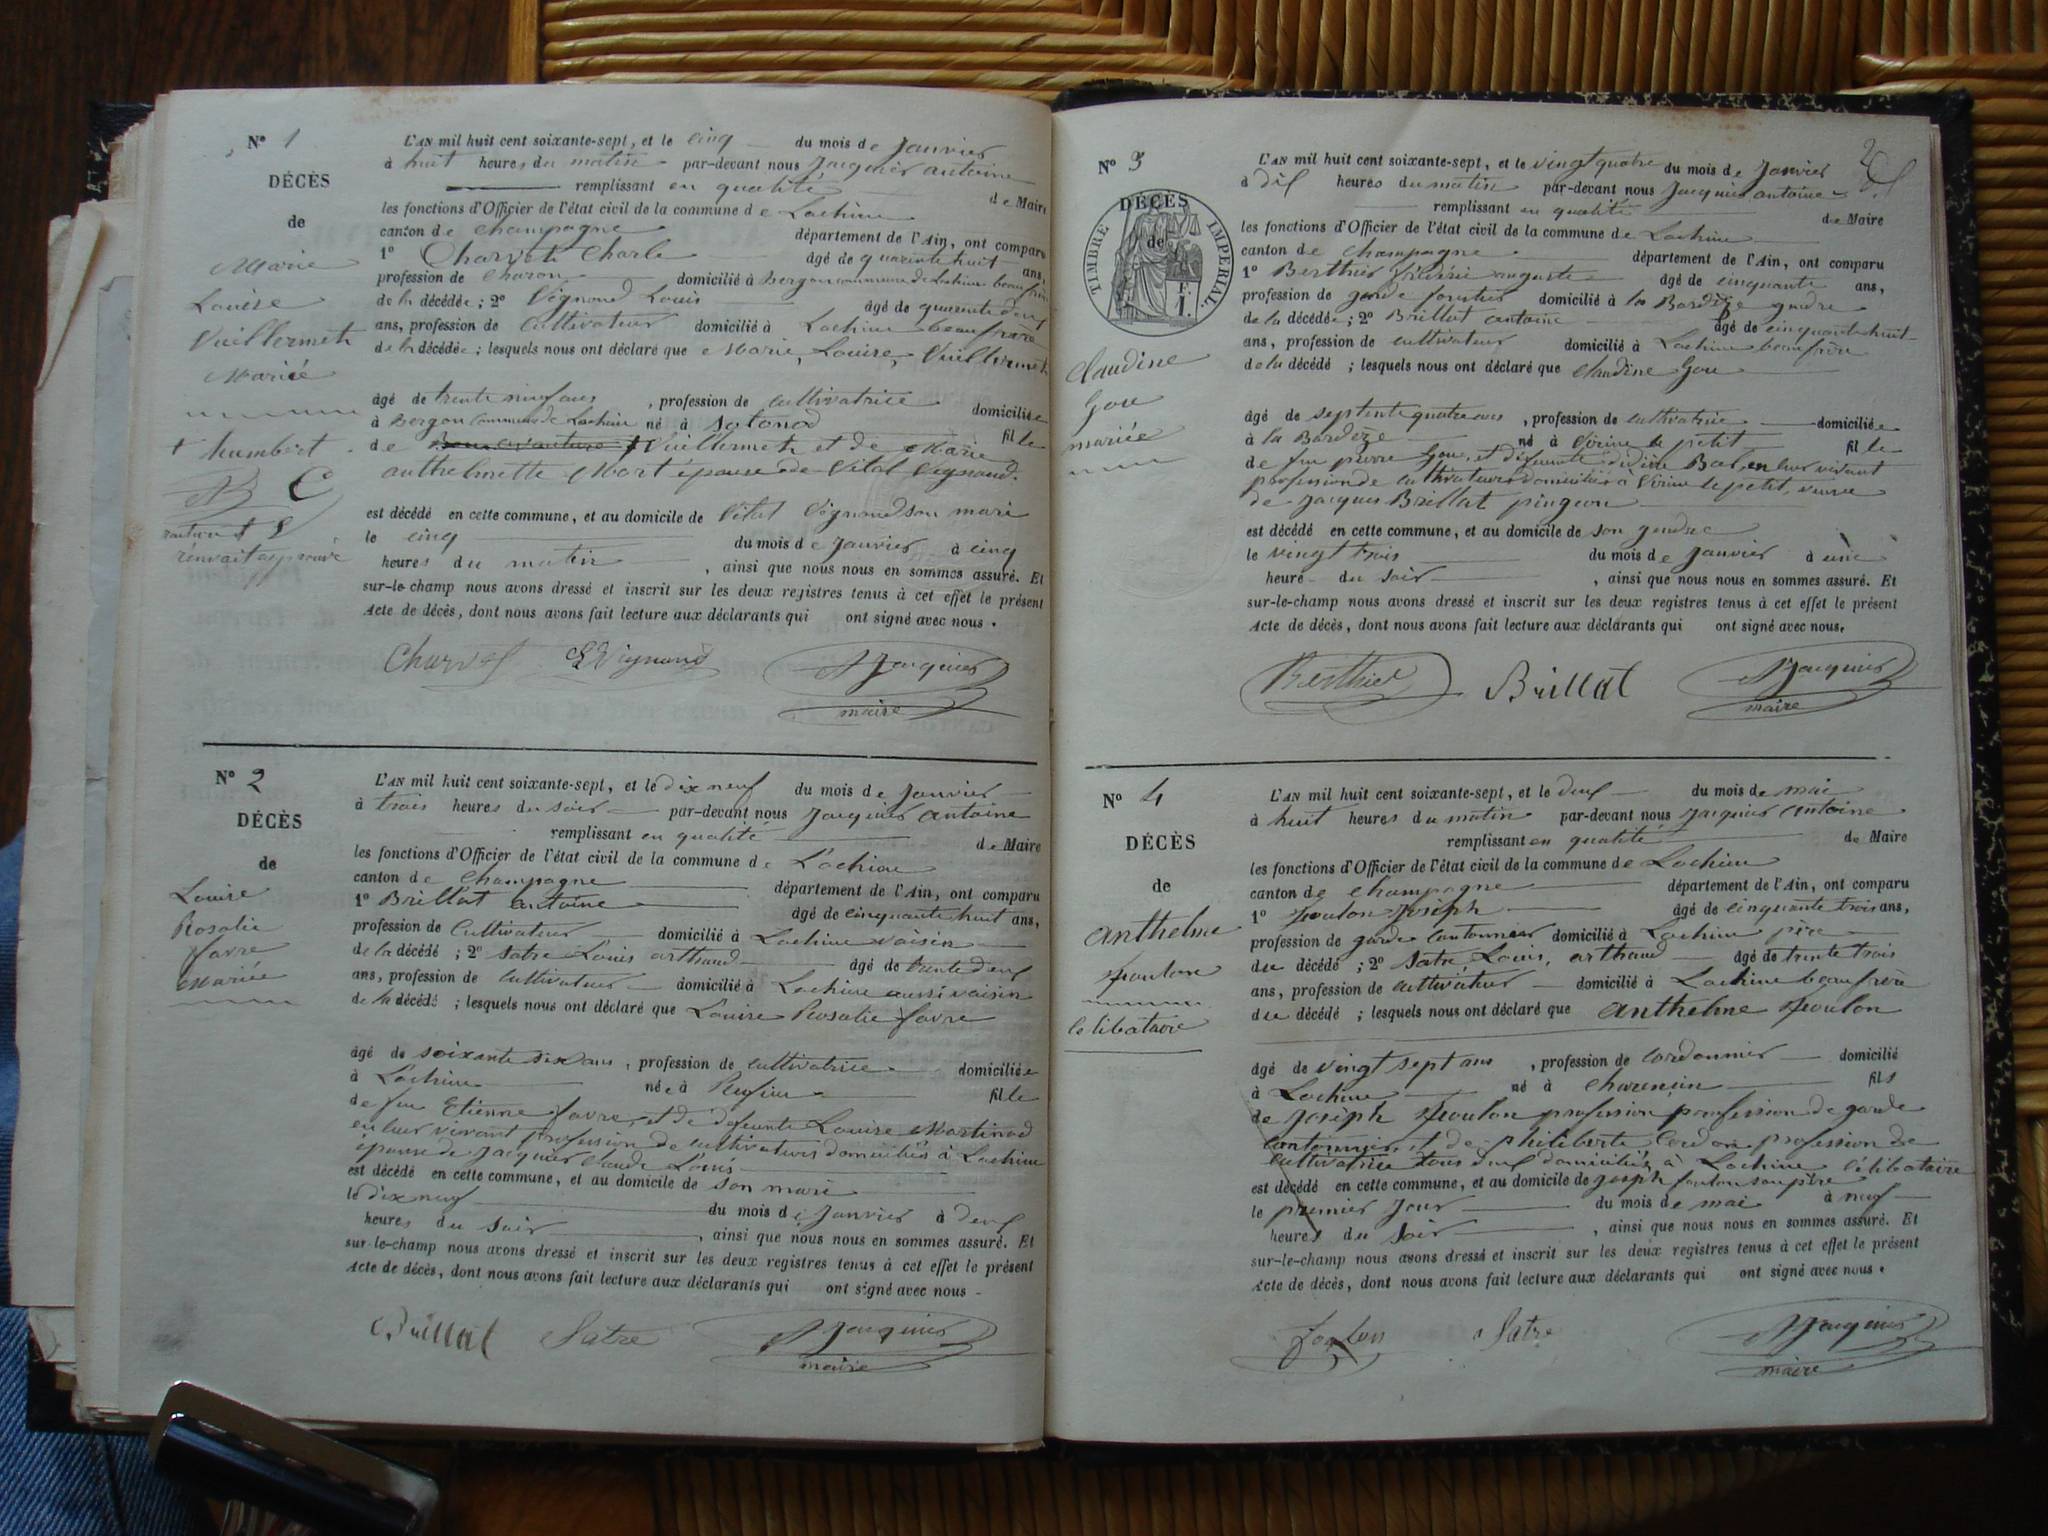 N° 1
DÉCÈS
de
Marie
Louise
Vuillermet
Mariée
+ humbert
B C
renvoit approuvé
L'AN mil huit cent soixante-sept, et le cinq du mois de Janvier
à huit heures du matin par-devant nous Jacquier antoine
remplissant en qualité de Maire
les fonctions d'Officier de l'état civil de la commune de Lochieu
canton de champagne département de l'Ain, ont comparu
1° Charvet Charle âgé de quarante huit ans,
profession de charon domicilié à bergon commune de Lochieu beau frère
de la décédée ; 2° Vignond Louis âgé de quarente deux
ans, profession de cultivateur domicilié à Lochieu beau frère
de la décédée ; lesquels nous ont déclaré que Marie, Louise, Vuillermet
âgé de trente neuf ans , profession de cultivatrice domiciliée
à bergon commune de Lochieu né à sotonod fille
de + Vuillermet et de Marie
anthelmette Mort épouse de Vital Vignond.
est décédé en cette commune, et au domicile de Vital Vignond son mari
le cinq du mois de Janvier à cinq
heures du matin , ainsi que nous nous en sommes assuré. Et
sur-le-champ nous avons dressé et inscrit sur les deux registres tenus à cet effet le présent
Acte de décès, dont nous avons fait lecture aux déclarants qui ont signé avec nous.
Charvet L Vignond A Jacquier
maire
N° 2
DÉCÈS
de
Louise
Rosalie
favre
Mariée
L'AN mil huit cent soixante-sept, et le dix neuf du mois de Janvier
à trois heures du soir par-devant nous Jacquier antoine
remplissant en qualité de Maire
les fonctions d'Officier de l'état civil de la commune de Lochieu
canton de champagne département de l'Ain, ont comparu
1° Brillat antoine âgé de cinquante huit ans,
profession de Cultivateur domicilié à Lochieu voisin
de la décédé ; 2° Satre Louis arthaud âgé de trente deux
ans, profession de cultivateur domicilié à Lochieu aussi voisin
de la décédé ; lesquels nous ont déclaré que Louise Rosalie favre
âgé de soixante dix ans , profession de cultivatrice domiciliée
à Lochieu née à Ruffieu fille
de feu Etienne favre, et de défunte Louise Martinod
en leur vivant profession de cultivateurs domiciliés à Lochieu
épouse de Jacquier Claude Louis
est décédé en cette commune, et au domicile de son mari
le dix neuf du mois de Janvier à deux
heures du soir , ainsi que nous nous en sommes assuré. Et
sur-le-champ nous avons dressé et inscrit sur les deux registres tenus à cet effet le présent
Acte de décès, dont nous avons fait lecture aux déclarants qui ont signé avec nous
Brillat Satre A Jacquier
maire
2
N° 3
DÉCÈS
de
TIMBRE IMPERIAL
F.
1.
Claudine
Gou
mariée
L'AN mil huit cent soixante-sept, et le vingt quatre du mois de Janvier
à dix heures du matin par-devant nous Jacquier antoine
remplissant en qualité de Maire
les fonctions d'Officier de l'état civil de la commune de Lochieu
canton de champagne département de l'Ain, ont comparu
1° Berthier auguste âgé de cinquante ans,
profession de garde forestier domicilié à la Bardèze gendre
de la décédée ; 2° Brillat antoine âgé de cinquante huit
ans, profession de cultivateur domicilié à Lochieu beau frère
de la décédé ; lesquels nous ont déclaré que Claudine Gou
âgé de septente quatre ans , profession de cultivatrice domiciliée
à la Bardèze né à Virieu le petit fille
de feu pierre Gou, et défunte Bal, en leur vivant
profession de cultivateurs domiciliés à Virieu le petit, veuve
de Jacques Brillat pingeon
est décédé en cette commune, et au domicile de son gendre
le vingt trois du mois de Janvier à une
heure du soir , ainsi que nous nous en sommes assuré. Et
sur-le-champ nous avons dressé et inscrit sur les deux registres tenus à cet effet le présent
Acte de décès, dont nous avons fait lecture aux déclarants qui ont signé avec nous.
Berthier Brillat A Jacquier
maire
N° 4
DÉCÈS
de
Anthelme
foulon
célibataire
L'AN mil huit cent soixante-sept, et le deux du mois de mai
à huit heures du matin par-devant nous Jacquier antoine
remplissant en qualité de Maire
les fonctions d'Officier de l'état civil de la commune de Lochieu
canton de champagne département de l'Ain, ont comparu
1° foulon Joseph âgé de cinquante trois ans,
profession de garde cantonnier domicilié à Lochieu père
du décédé ; 2° Satre Louis, arthaud âgé de trente trois
ans, profession de cultivateur domicilié à Lochieu beau frère
du décédé ; lesquels nous ont déclaré que anthelme foulon
âgé de vingt sept ans , profession de cordonnier domicilié
à Lochieu né à charencin fils
de Joseph foulon profession, profession de garde
cantonnier, et de philiberte Cordon profession de
cultivatrice tous deux domiciliés à Lochieu célibataire
est décédé en cette commune, et au domicile de joseph foulon son père
le premier jour du mois de mai à neuf
heures du soir , ainsi que nous nous en sommes assuré. Et
sur-le-champ nous avons dressé et inscrit sur les deux registres tenus à cet effet le présent
Acte de décès, dont nous avons fait lecture aux déclarants qui ont signé avec nous.
foulon Satre A Jacquier
maire